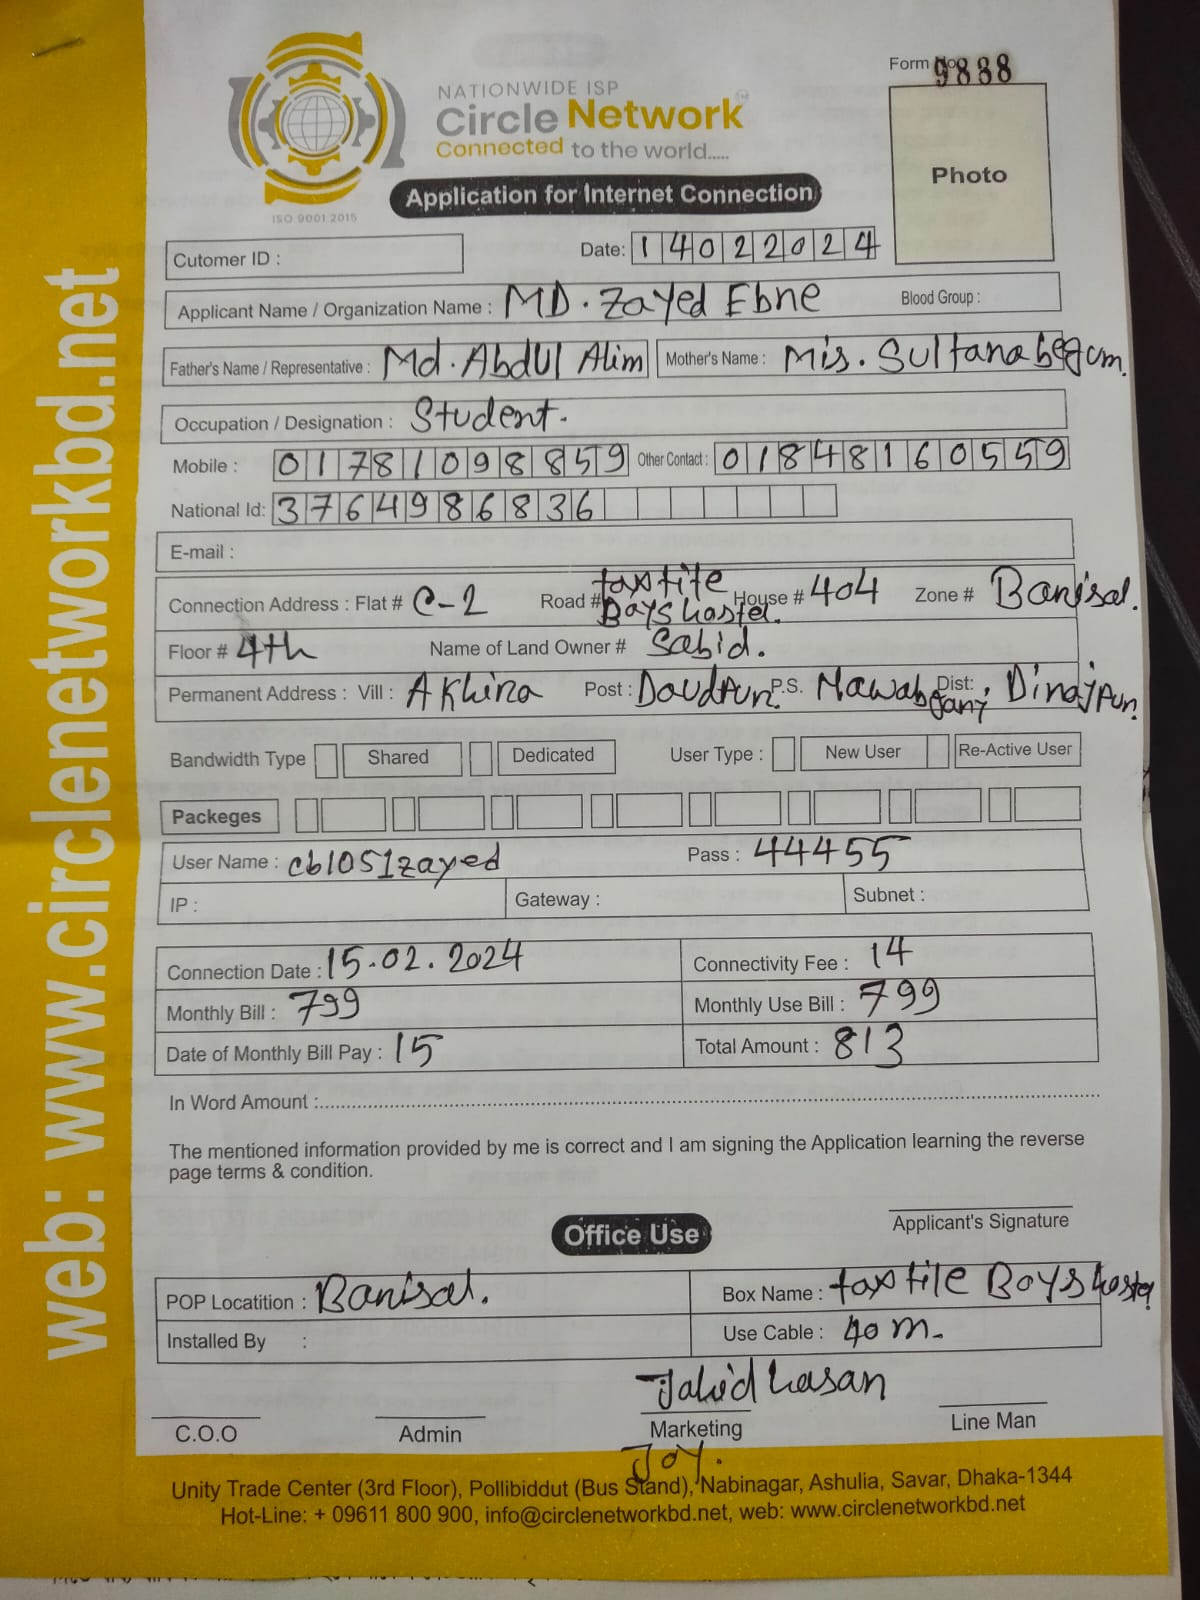 Form No 9838
NATIONWIDE ISP
Circle Network
Connected to the world.....
ISO 9001:2015
Application for Internet Connection
Photo
Cutomer ID :
Date: 14022024
Applicant Name / Organization Name : MD. Zayed Ebne Blood Group :
Father's Name / Representative : Md. Abdul Alim Mother's Name : Mis. Sultana begum.
Occupation / Designation : Student.
Mobile : 01781098859 Other Contact : 01848160559
National Id: 3764986836
E-mail :
Connection Address : Flat # C-2 Road # taxtile Boys hostel. House # 404 Zone # Barisal.
Floor # 4th Name of Land Owner # Sabid.
Permanent Address : Vill : Akhira Post : Doudpur. P.S. Nawabganj Dist: , Dinajpur.
Bandwidth Type Shared Dedicated User Type : New User Re-Active User
Packeges
User Name : cb1051zayed Pass : 44455
IP : Gateway : Subnet :
Connection Date : 15.02.2024 Connectivity Fee : 14
Monthly Bill : 799 Monthly Use Bill : 799
Date of Monthly Bill Pay : 15 Total Amount : 813
In Word Amount :
The mentioned information provided by me is correct and I am signing the Application learning the reverse
page terms & condition.
Applicant's Signature
Office Use
POP Locatition : Barisal. Box Name : taxtile Boys hostel
Installed By : Use Cable : 40 m.
Jahid hasan
C.O.O Admin Marketing Line Man
Joy.
Unity Trade Center (3rd Floor), Pollibiddut (Bus Stand), Nabinagar, Ashulia, Savar, Dhaka-1344
Hot-Line: + 09611 800 900, info@circlenetworkbd.net, web: www.circlenetworkbd.net
web: www.circlenetworkbd.net